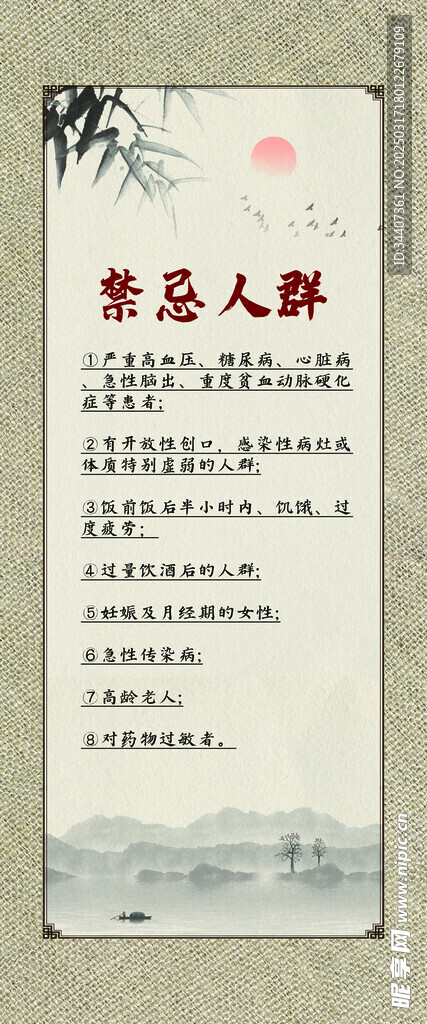 禁忌人群
①严重高血压、糖尿病、心脏病
、急性脑出、重度贫血动脉硬化
症等患者;
②有开放性创口,感染性病灶或
体质特别虚弱的人群;
③饭前饭后半小时内、饥饿、过
度疲劳;
④过量饮酒后的人群;
⑤妊娠及月经期的女性;
⑥急性传染病;
⑦高龄老人;
⑧对药物过敏者。
ID:34407361 NO:20250317180122679109
昵享网 www.nipic.cn